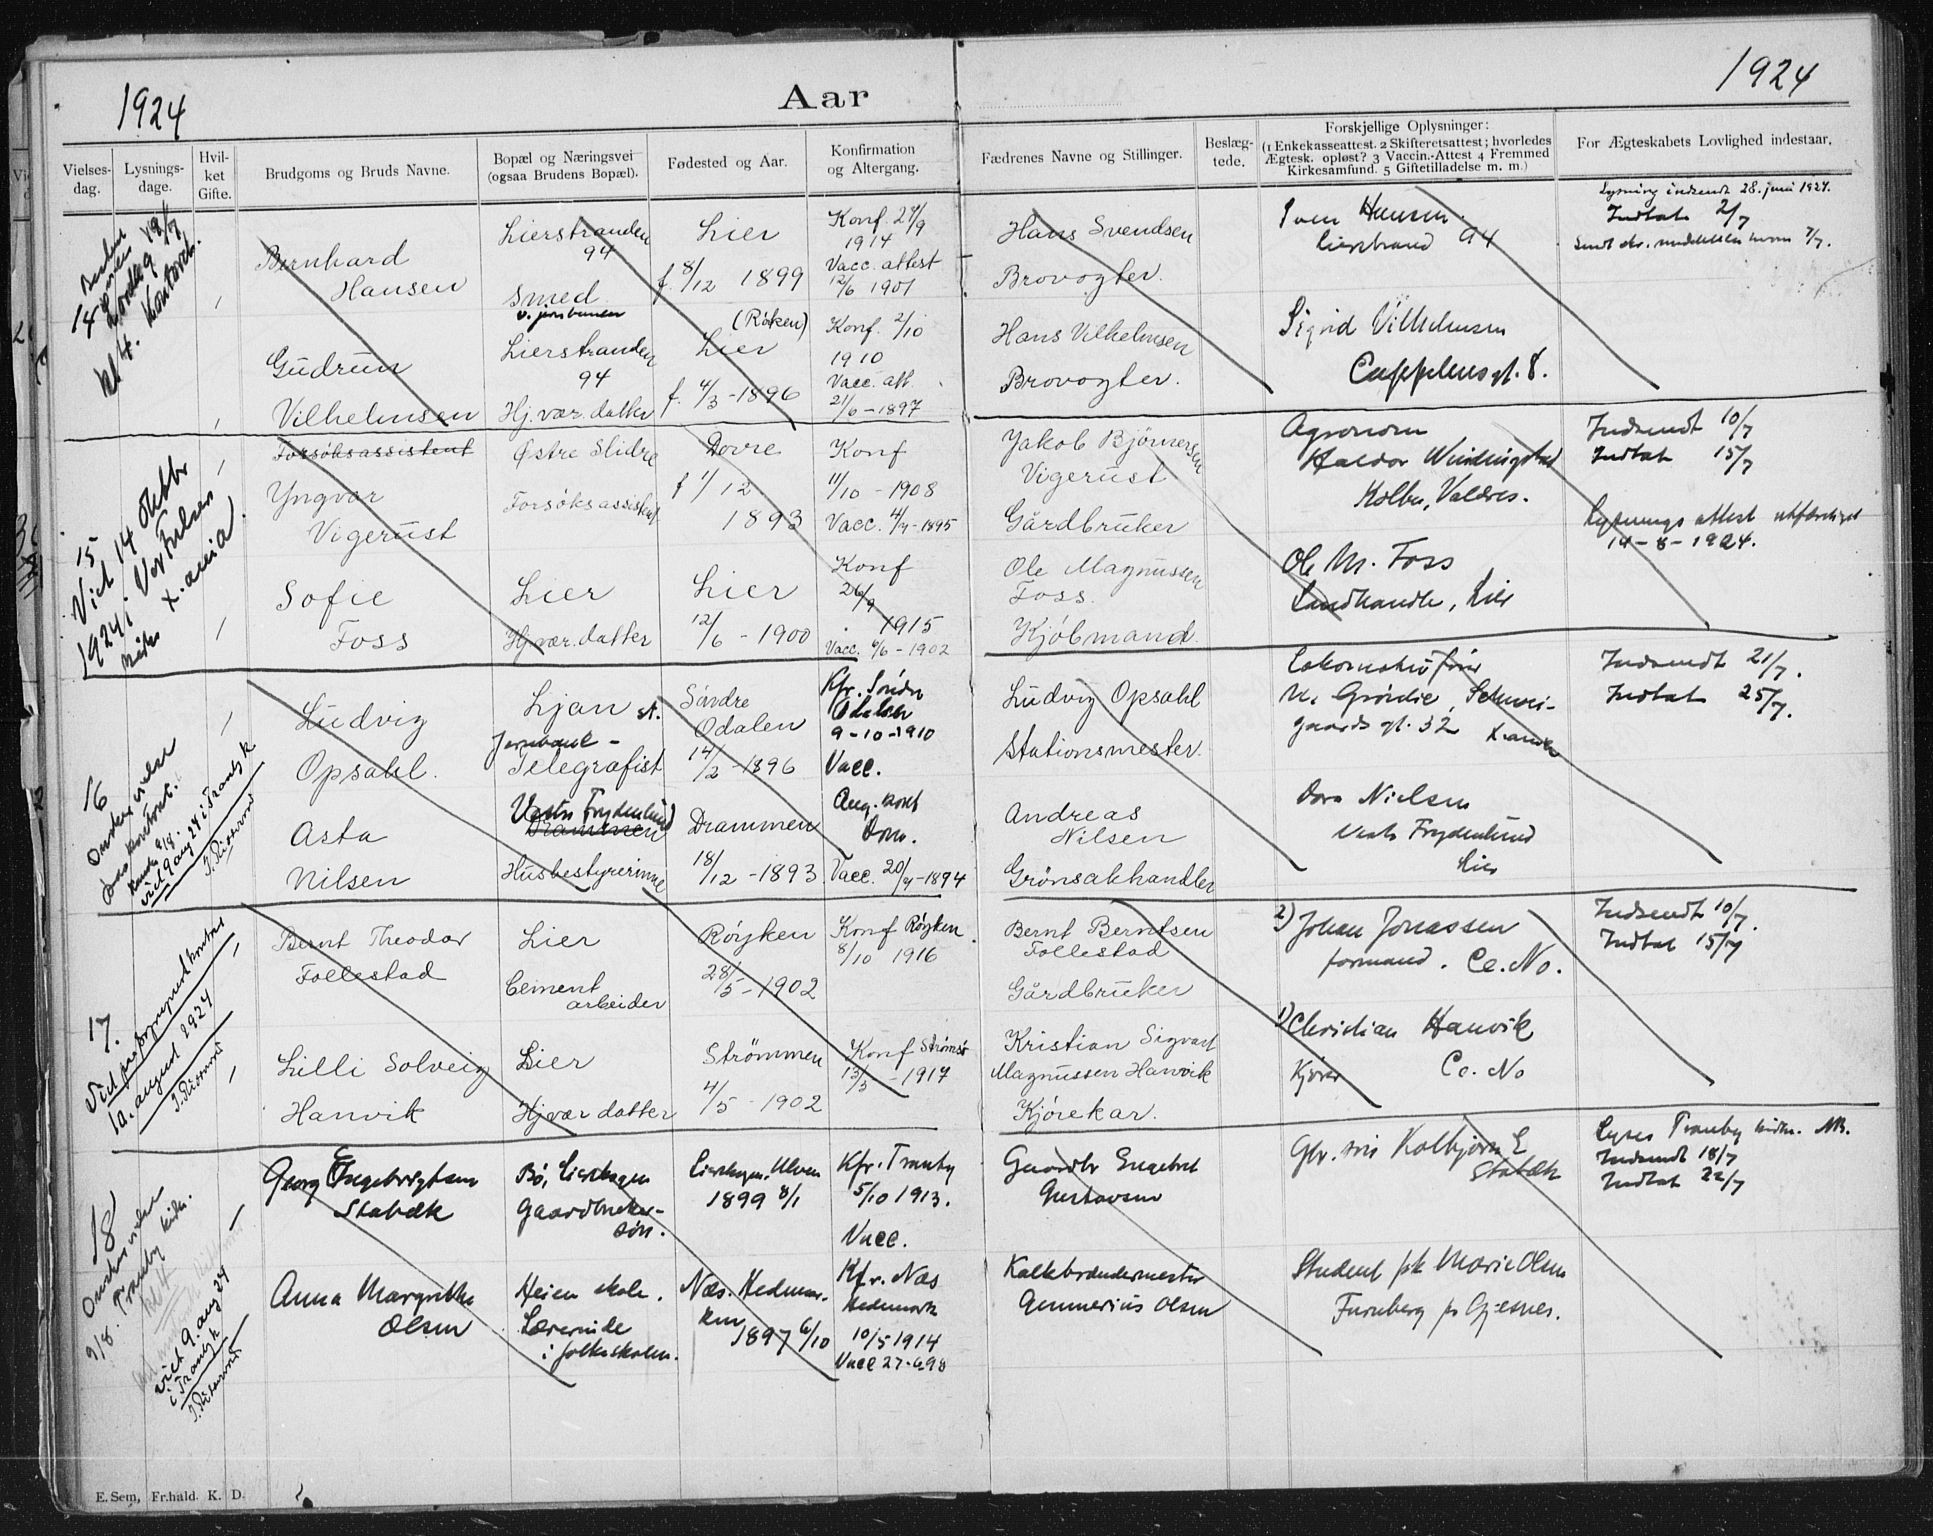 1924
Aar
1924
Vielses-
dag.
Lysnings-
dage.
Hvil-
ket
Gifte.
Brudgoms og Bruds Navne.
Bopæl og Næringsvei
(ogsaa Brudens Bopæl).
Fødested og Aar.
Konfirmation
og Altergang.
Fædrenes Navne og Stillinger.
Beslæg-
tede.
Forskjellige Oplysninger:
(1 Enkekasseattest. 2 Skifteretsattest; hvorledes
Ægtesk. opløst? 3 Vaccin.-Attest 4 Fremmed
Kirkesamfund. 5 Giftetilladelse m. m.)
For Ægteskabets Lovlighed indestaar.
14
kl 4. Kontoret.
Bernhard
Hansen
Lierstranden
94
Smed
v. jernbanen
Lier
f. 8/12 1899
Konf. 27/9
1914
Vacc. attest
12/6 1901
Hans Svendsen
Brovogter.
Sven Hansen.
Lierstrand 94
Lysning indsendt 28. juni 1924.
Indtat 2/7
Gudrun
Vilhelmsen
Lierstranden
94
Hj.vær. datter
(Røken)
Lier
f. 4/3 - 1896
Konf. 2/10
1910
Vacc. att.
21/6 - 1897
Hans Vilhelmsen
Brovogter.
Sigrid Vilhelmsen
Cappelensgt. 8.
15
Viet 14 oktbr
1924 i Vor Frelser
X.ania
Forsøksassistent
Yngvar
Vigerust
Østre Slidre
Forsøksassistent
Dovre
f 1/12
1893
Konf
11/10 - 1908
Vacc. 4/7 - 1895
Jakob Bjørnersen
Vigerust
Gårdbruker
Agronom
Haldor Windingstad
Kolbu, Valdres.
Indsendt 10/7
Indtat 15/7
Lysnings attest utfærdiget
14 - 8 - 1924.
Sofie
Foss
Lier
Hj.vær. datter
Lier
12/6 - 1900
Konf
26/9
1915
Vacc. 6/6 - 1902
Ole Magnussen
Foss.
Kjøbmand.
Ole M. Foss
Landhandler, Lier
16
Ønskes viet
paa kontoret.
viet 9 aug 24 i Tranby k
Ludvig
Opsahl.
Ljan st.
Jernbane -
Telegrafist
Søndre
Odalen
14/2 - 1896
Kfr. Søndre
Odalen
9 - 10 - 1910
Vacc.
Ludvig Opsahl
Stationsmester.
Lokomotivfører
M. Grøndie, Schwei-
gaards gt. 52 X.ania
Indsendt 21/7.
Indtat 25/7.
Asta
Nilsen
Vestre Frydenlund
Drammen
Husbestyrerinne
Drammen
18/12 - 1893
Aug. konf
Drm.
Vacc. 20/4 - 1894
Andreas
Nilsen
Grønsakhandler
Dora Nielsen
Vestre Frydenlund
Lier
17.
Viet paa sogneprestkontoret
10. august 1924
Bernt Theodor
Follestad
Lier
Cement
arbeider
Røyken
28/5 - 1902
Konf Røyken
8/10 1916
Bernt Berntsen
Follestad
Gårdbruker
2) Johan Jonassen
formand. Ce. No.
Indsendt 10/7.
Indtat 15/7
Lilli Solveig
Hanvik
Lier
Hjvær datter
Strømmen
4/5 - 1902
Konf Strømsø
13/5 - 1917
Kristian Sigvart
Magnussen Hanvik
Kjørekar.
1) Christian Hanvik
Kjører Ce. No
18
Ønskes viet
9/8. Tranby kirke.
viet 9 aug 24
i Tranby k
Georg Engebrigtsen
Stabæk
Bø, Lierskogen
Gaardbruker-
søn.
Lierskogen. Ulven
1899 8/1
Kfr. Tranby
5/10 1913.
Vacc.
Gaardbr Engebret
Gustavsen
Gbr. søn Kolbjørn E
Stabæk
Lyses Tranby kirke. NB.
Indsendt 18/7
Indtat 22/7
Anna Margrethe
Olsen
Heien skole.
Lærerinde
i folkeskolen.
Næs. Hedmar-
ken
1897 6/10
Kfr. Næs
Hedemark
10/5 1914
Vacc 27-6 98
Kalkbrændermester
Gunnerius Olsen
Student frk Marie Olsen
Furuberg pr Gjesnes.
E. Sem, Fr.hald. K. D.